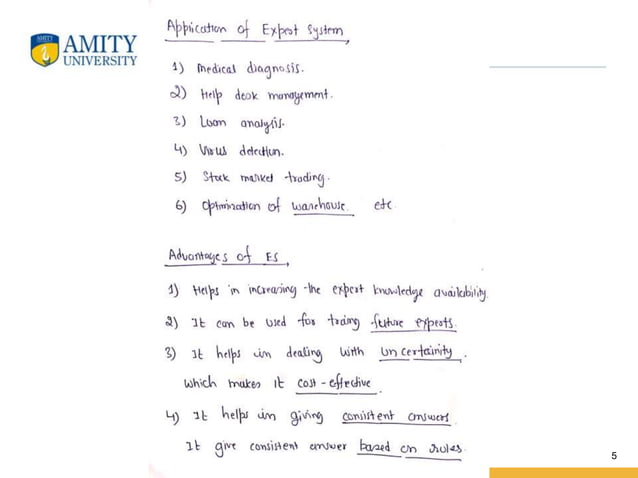 AMITY
AMITY
UNIVERSITY
Application of Expert System,
1) Medical diagnosis.
2) Help desk management.
3) Loan analysis.
4) Virus detection.
5) Stock market trading.
6) Optimization of warehouse. etc.
Advantages of ES,
1) Helps in increasing the expert knowledge availability.
2) It can be used for traing future experts.
3) It helps in dealing with uncertainity.
which makes it cost-effective.
4) It helps in giving consistent answers.
It give consistent answer based on rules.
5